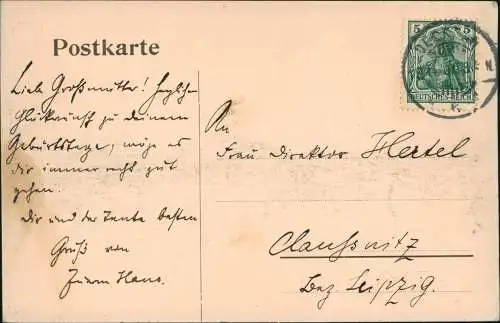 Postkarte
Liebe Großmutter! Herzlichen
Glückwunsch zu deinem
Geburtstage, möge es
dir immer recht gut
gehen.
Dir und der Tante besten
Gruß von
Hans.
5 5
DEUTSCHES REICH
An
Frau Direktor Hertel
Claussnitz
Bez. Leipzig.